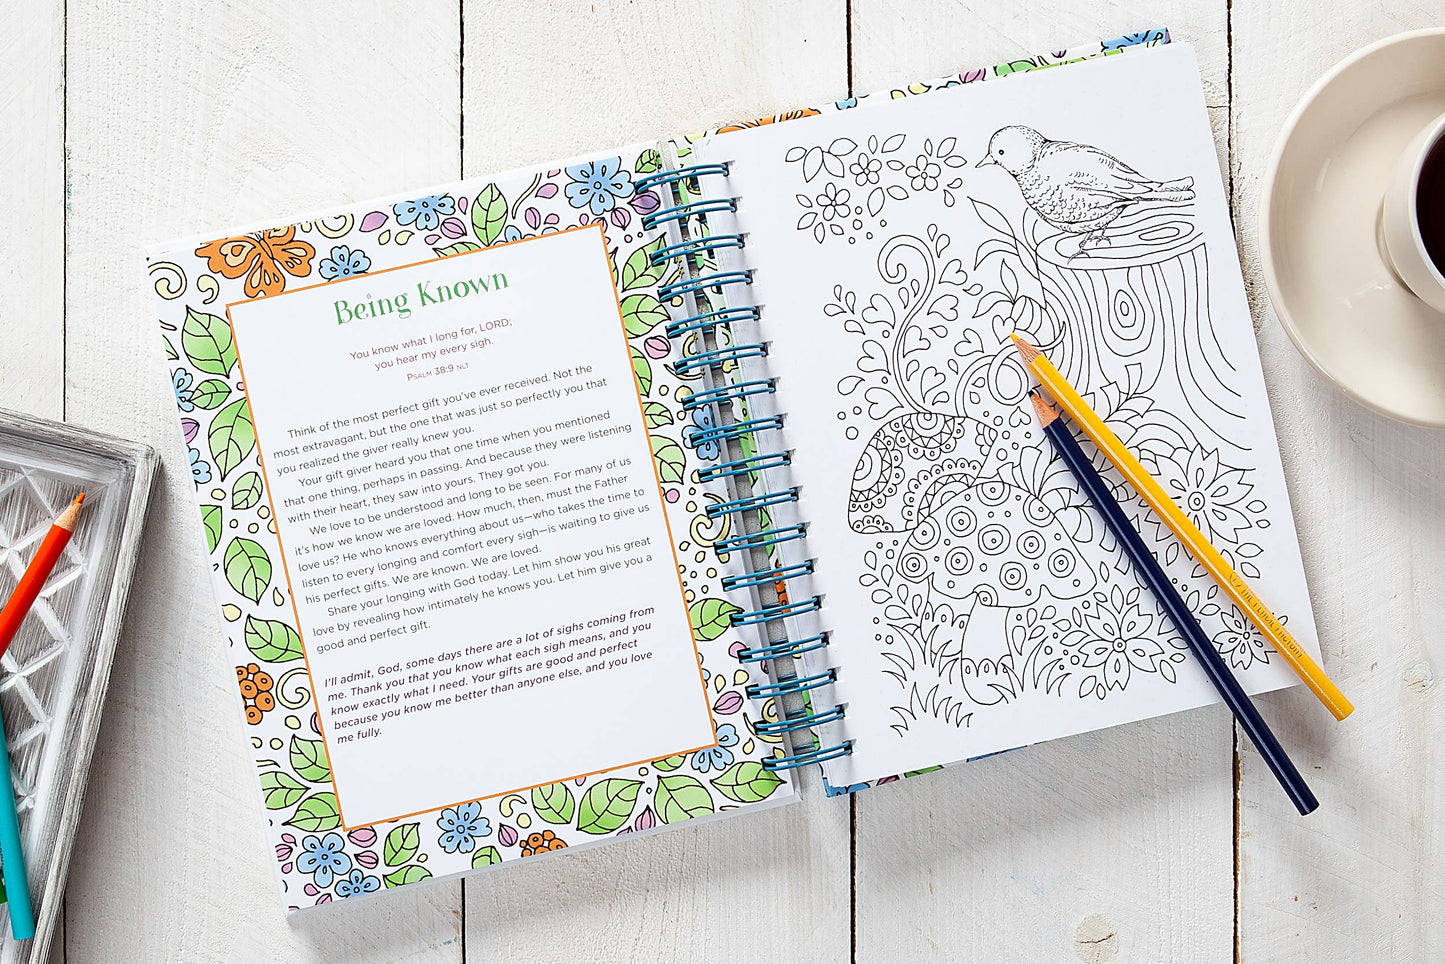 Being Known
You know what I long for, LORD;
you hear my every sigh.
PSALM 38:9 NLT
Think of the most perfect gift you've ever received. Not the
most extravagant, but the one that was just so perfectly you that
you realized the giver really knew you.
Your gift giver heard you that one time when you mentioned
that one thing, perhaps in passing. And because they were listening
with their heart, they saw into yours. They got you.
We love to be understood and long to be seen. For many of us
it's how we know we are loved. How much, then, must the Father
love us? He who knows everything about us—who takes the time to
listen to every longing and comfort every sigh—is waiting to give us
his perfect gifts. We are known. We are loved.
Share your longing with God today. Let him show you his great
love by revealing how intimately he knows you. Let him give you a
good and perfect gift.
I'll admit, God, some days there are a lot of sighs coming from
me. Thank you that you know what each sigh means, and you
know exactly what I need. Your gifts are good and perfect
because you know me better than anyone else, and you love
me fully.